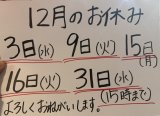 12月のお休み
3日(水) 9日(火) 15日(月)
16日(火) 31日(水)
(15時まで)
よろしくおねがいします。